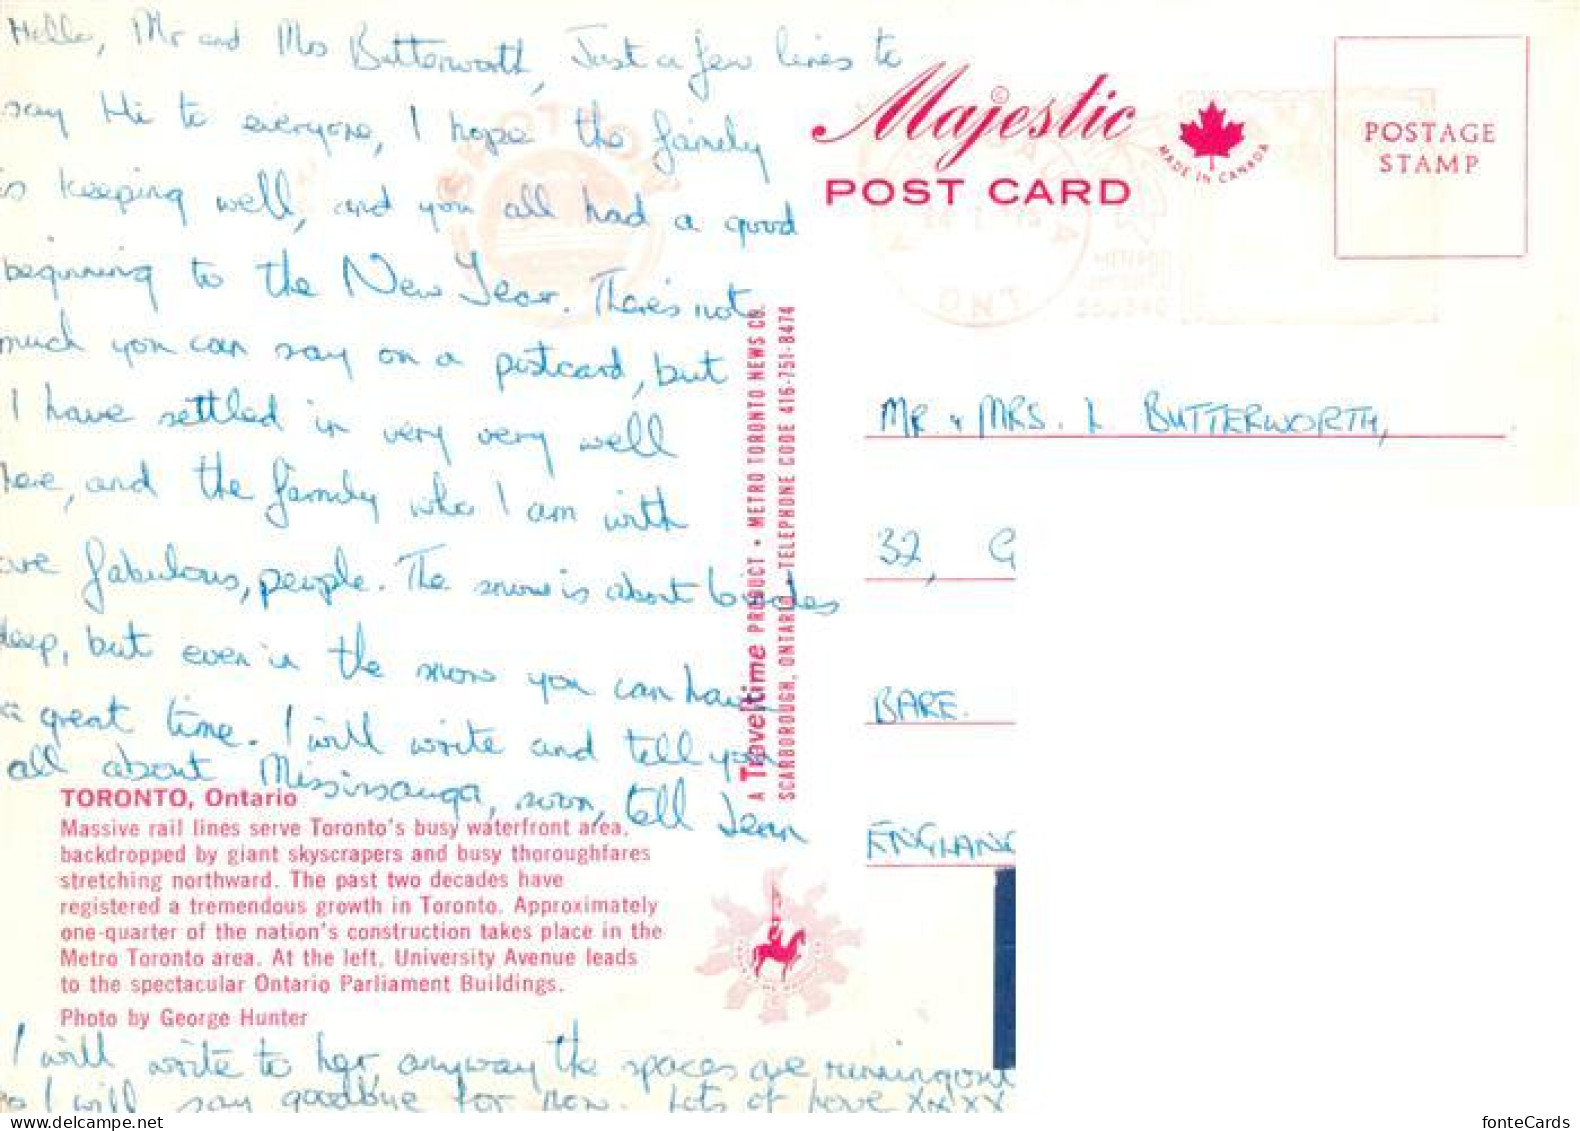 Hello, Mr and Mrs Butterworth, Just a few lines to
say Hi to everyone, I hope the family
is keeping well, and you all had a good
beginning to the New Year. There's not
much you can say on a postcard, but
I have settled in very very well
here, and the family who I am with
are fabulous, people. The snow is about 6 inches
deep, but even in the snow you can have
a great time. I will write and tell you
all about Mississauga, soon, tell Jean
TORONTO, Ontario
Massive rail lines serve Toronto's busy waterfront area,
backdropped by giant skyscrapers and busy thoroughfares
stretching northward. The past two decades have
registered a tremendous growth in Toronto. Approximately
one-quarter of the nation's construction takes place in the
Metro Toronto area. At the left, University Avenue leads
to the spectacular Ontario Parliament Buildings.
Photo by George Hunter
I will write to her anyway the spaces are running out
so I will say goodbye for now. Lots of love XXXX
A Traveltime PRODUCT • METRO TORONTO NEWS CO.
SCARBOROUGH, ONTARIO, TELEPHONE CODE 416-751-8474
Majestic ©
POST CARD
MADE IN CANADA
POSTAGE
STAMP
MR & MRS. L BUTTERWORTH,
32, G
BARE.
ENGLAND
fonteCards